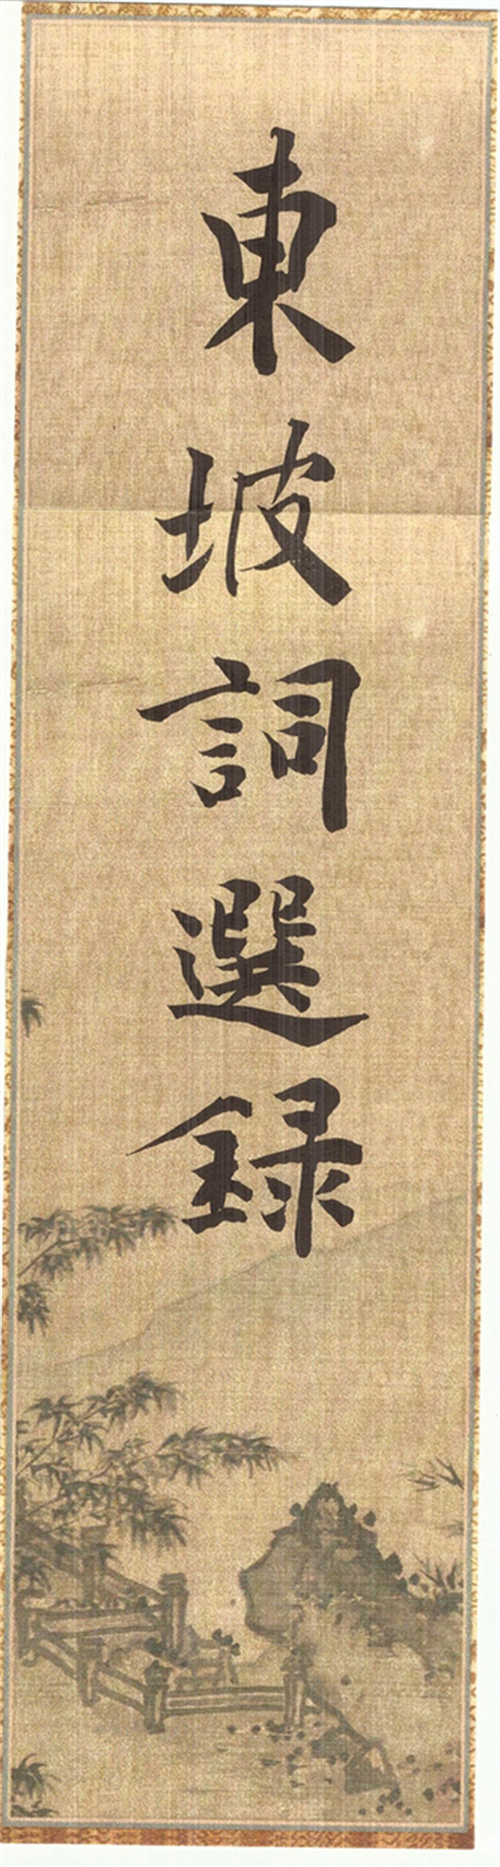 東坡詞選録